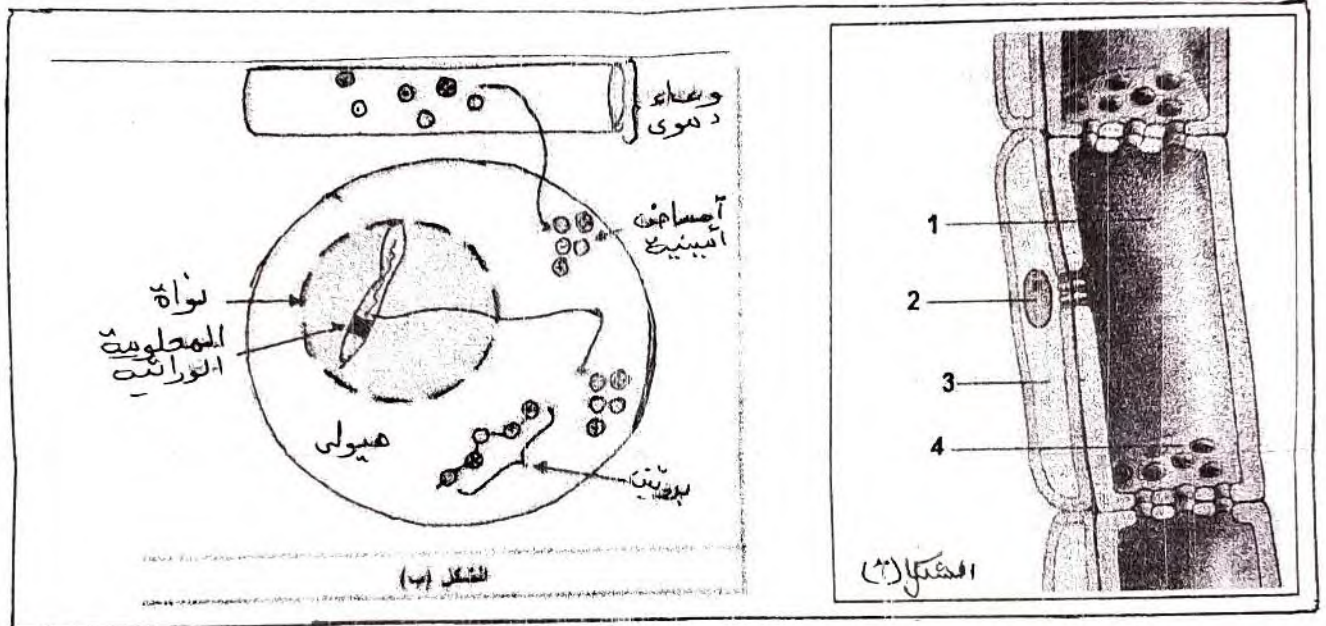 وعاء
دموي
أحماض
أمينية
نواة
المعلومة
الوراثية
هيولى
بروتين
الشكل (ب)
1
2
3
4